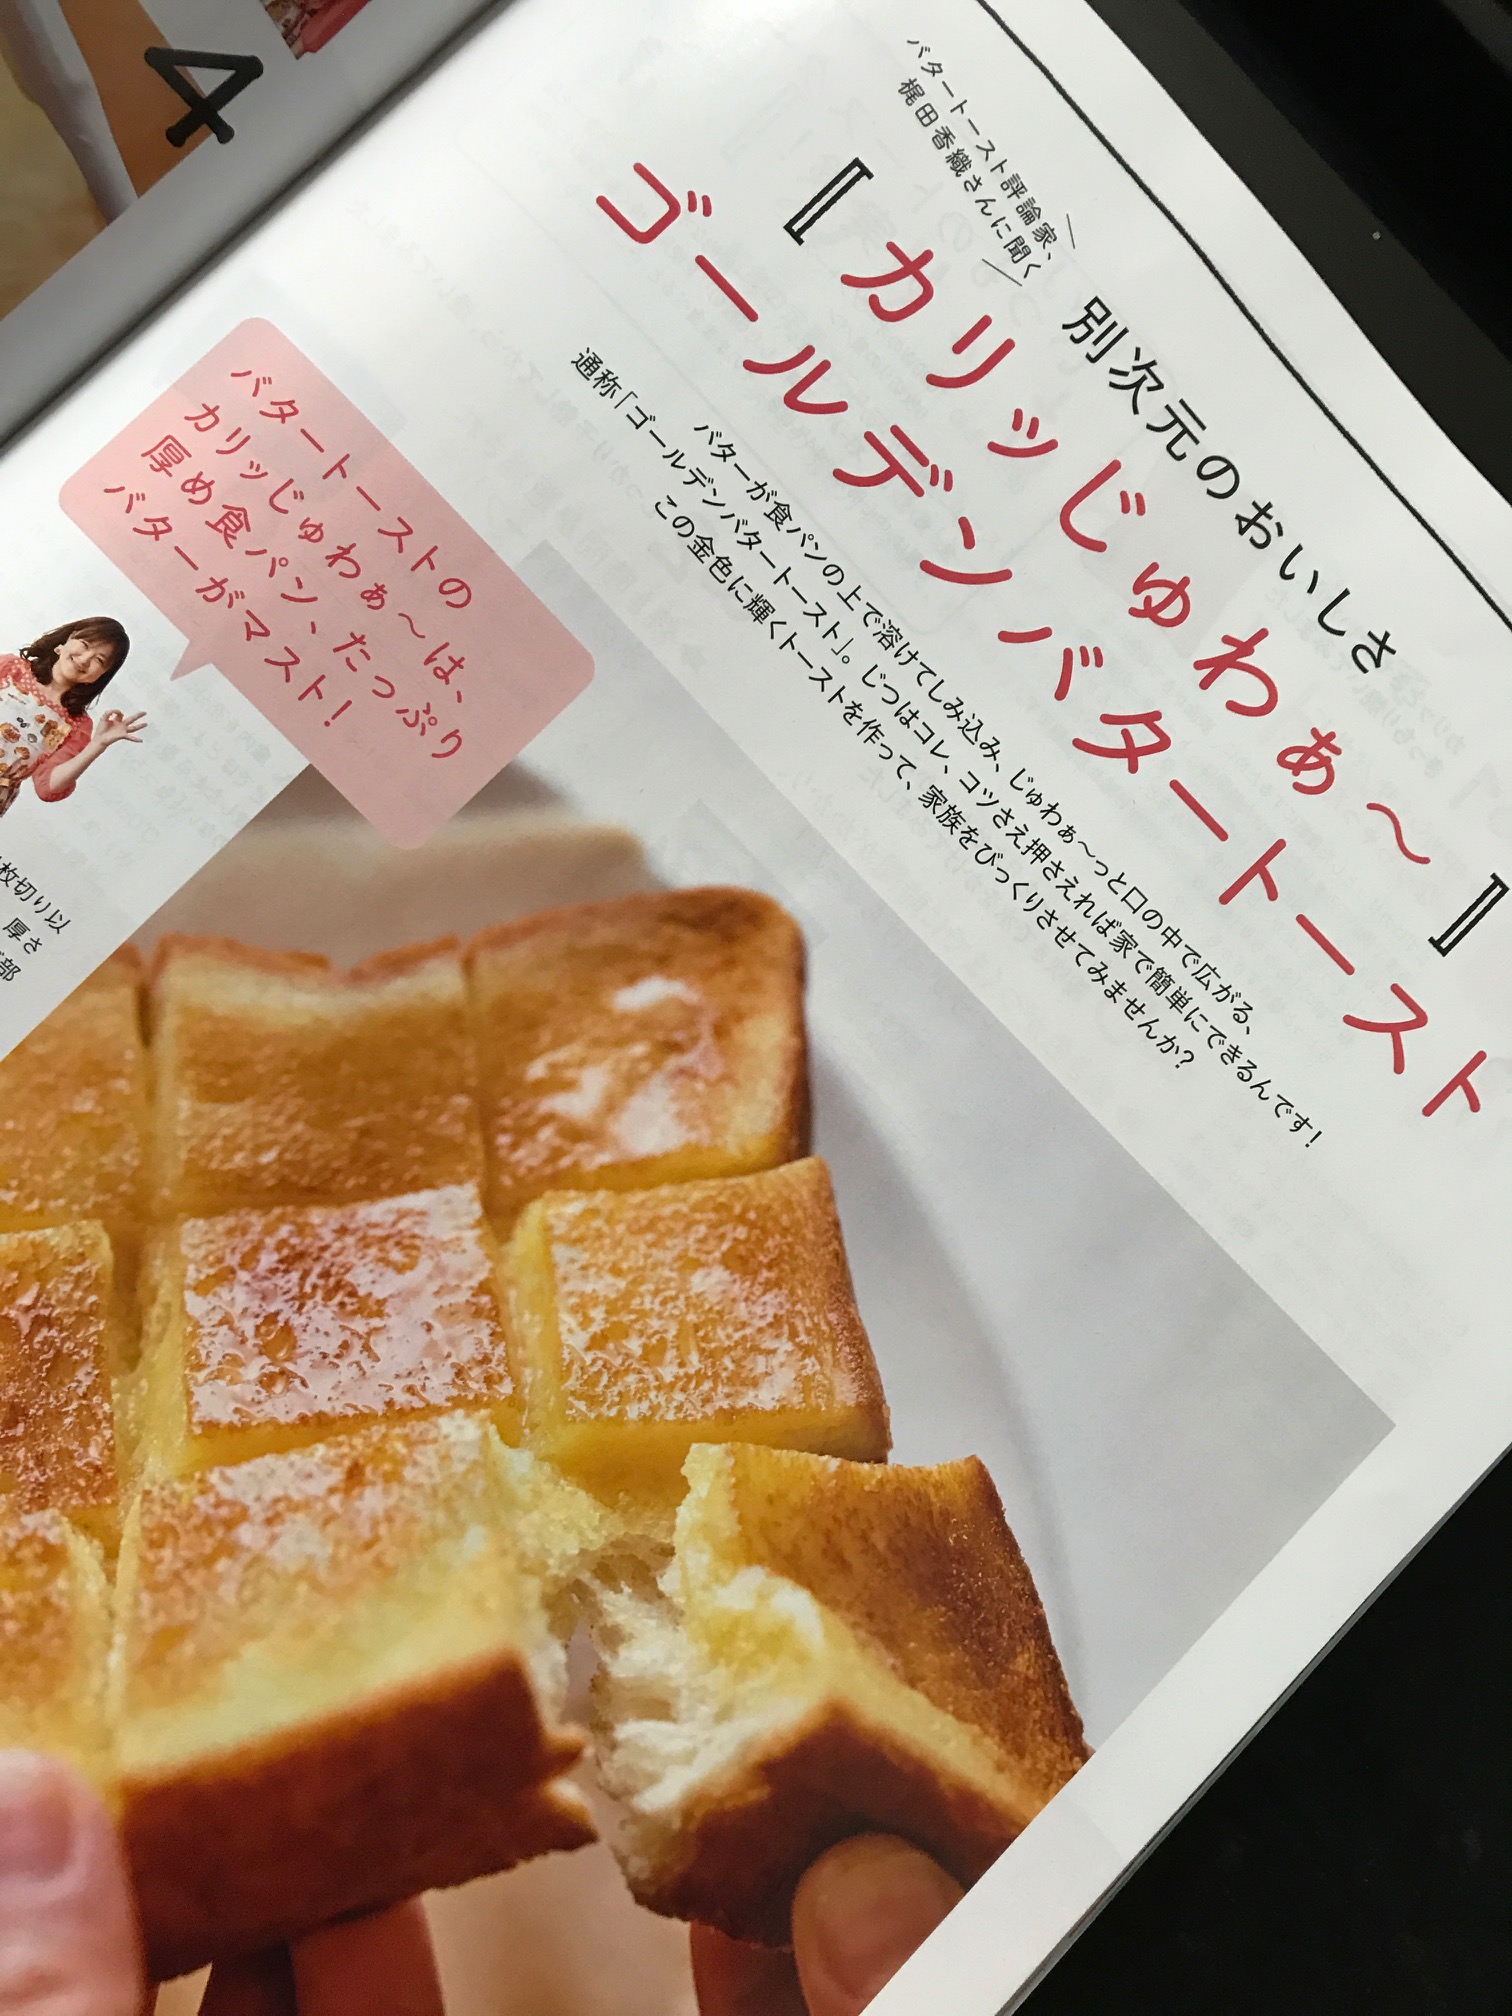 4
バタートースト評論家、
梶田香織さんに聞く
別次元のおいしさ
『カリッじゅわぁ〜』
ゴールデンバタートースト
バターが食パンの上で溶けてしみ込み、じゅわぁ〜っと口の中で広がる、
通称「ゴールデンバタートースト」。じつはコレ、コツさえ押さえれば家で簡単にできるんです!
この金色に輝くトーストを作って、家族をびっくりさせてみませんか?
バタートーストの
カリッじゅわぁ〜は、
厚め食パン、たっぷり
バターがマスト!
枚切り以
厚さ
部